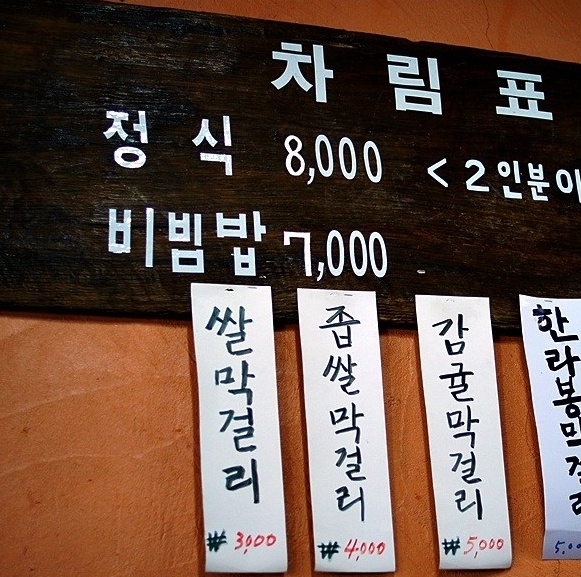 차림표
정식 8,000 <2인분이
비빔밥 7,000
쌀막걸리
₩ 3,000
좁쌀막걸리
₩ 4,000
감귤막걸리
₩ 5,000
한라봉막걸리